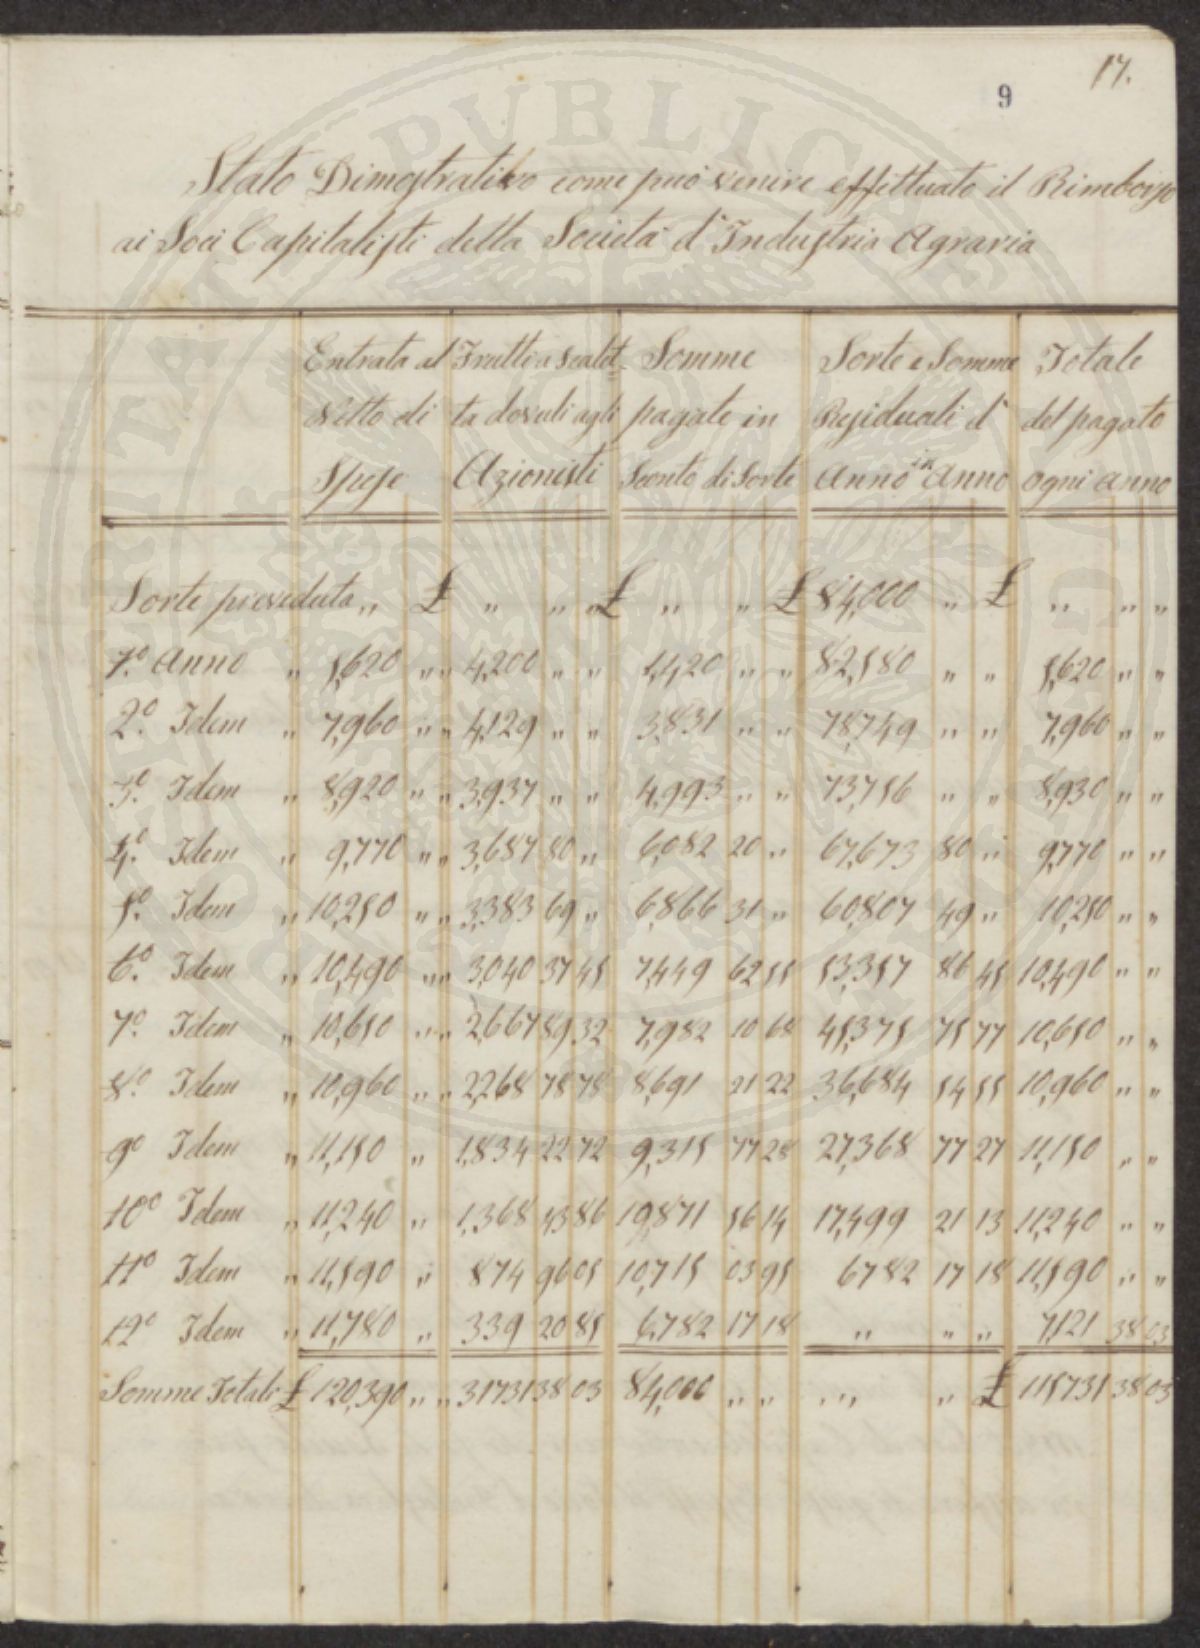 17.
9
Stato Dimostrativo come può venire effettuato il Rimborso
ai Soci Capitalisti della Società d'Industria Agraria
Entrata al Frutti a scalet- Somme Sorte e Somme Totale
Netto di ta dovuti agli pagate in Residuali d' del pagato
Spese Azionisti Sconto di Sorte Anno in Anno ogni anno
Sorte preveduta „ £ „ „ „ £ „ „ £ 84,000 „ £ „ „ „
1.º Anno „ 5,620 „ „ 4,200 „ „ 1,420 „ „ 82,580 „ „ 5,620 „ „
2.º Idem „ 7,960 „ „ 4,129 „ „ 3,831 „ „ 78,749 „ „ 7,960 „ „
3.º Idem „ 8,920 „ „ 3,937 „ „ 4,993 „ „ 73,756 „ „ 8,930 „ „
4.º Idem „ 9,770 „ „ 3,687 80 „ 6,082 20 „ 67,673 80 „ 9,770 „ „
5.º Idem „ 10,250 „ „ 3,383 69 „ 6,866 31 „ 60,807 49 „ 10,250 „ „
6.º Idem „ 10,490 „ „ 3,040 37 45 7,449 62 55 53,357 86 45 10,490 „ „
7.º Idem „ 10,650 „ „ 2,667 89 32 7,982 10 68 45,375 75 77 10,650 „ „
8.º Idem „ 10,960 „ „ 2,268 78 78 8,691 21 22 36,684 54 55 10,960 „ „
9º Idem „ 11,150 „ 1,834 22 72 9,315 77 28 27,368 77 27 11,150 „ „
10º Idem „ 11,240 „ 1,368 43 86 19,871 56 14 17,499 21 13 11,240 „ „
11º Idem „ 11,590 „ 874 96 05 10,715 03 95 6782 17 18 11,590 „ „
12º Idem „ 11,780 „ 339 20 85 6,782 17 18 „ „ „ 7,121 38 03
Somme Totale £ 120,390 „ „ 31731 38 03 84,000 „ „ „ „ £ 115731 38 03